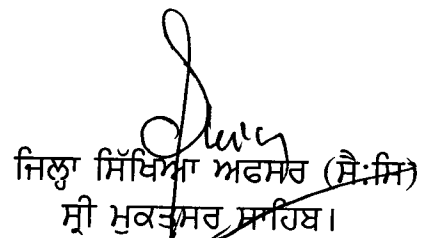 ਜਿਲ੍ਹਾ ਸਿੱਖਿਆ ਅਫਸਰ (ਸੈ:ਸਿ)
ਸ੍ਰੀ ਮੁਕਤਸਰ ਸਾਹਿਬ।